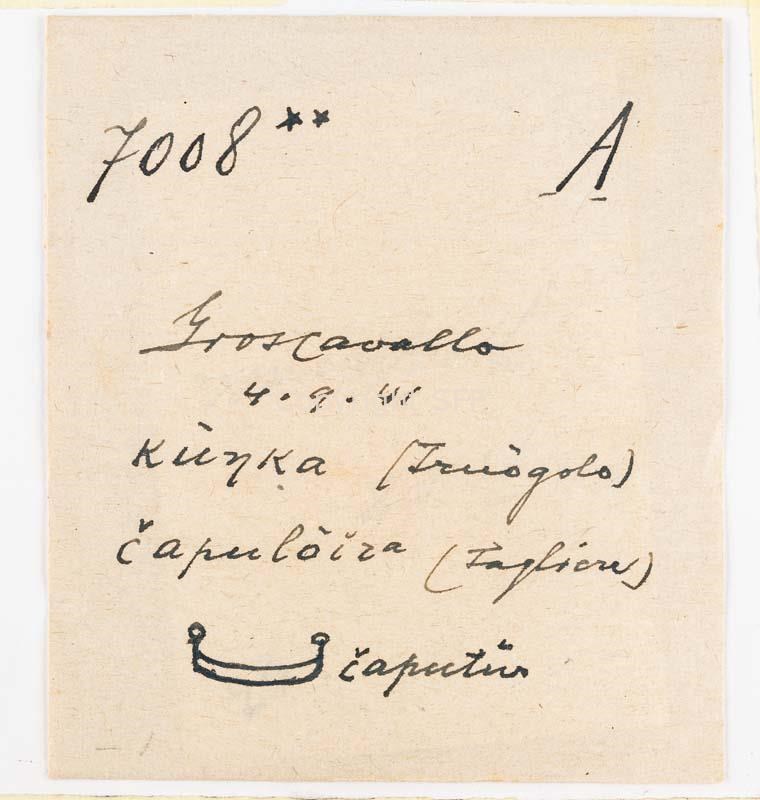 7008** A
Groscavallo
4.9.
kùŋka (Truògolo)
čapulòira (Tagliere)
čaputür